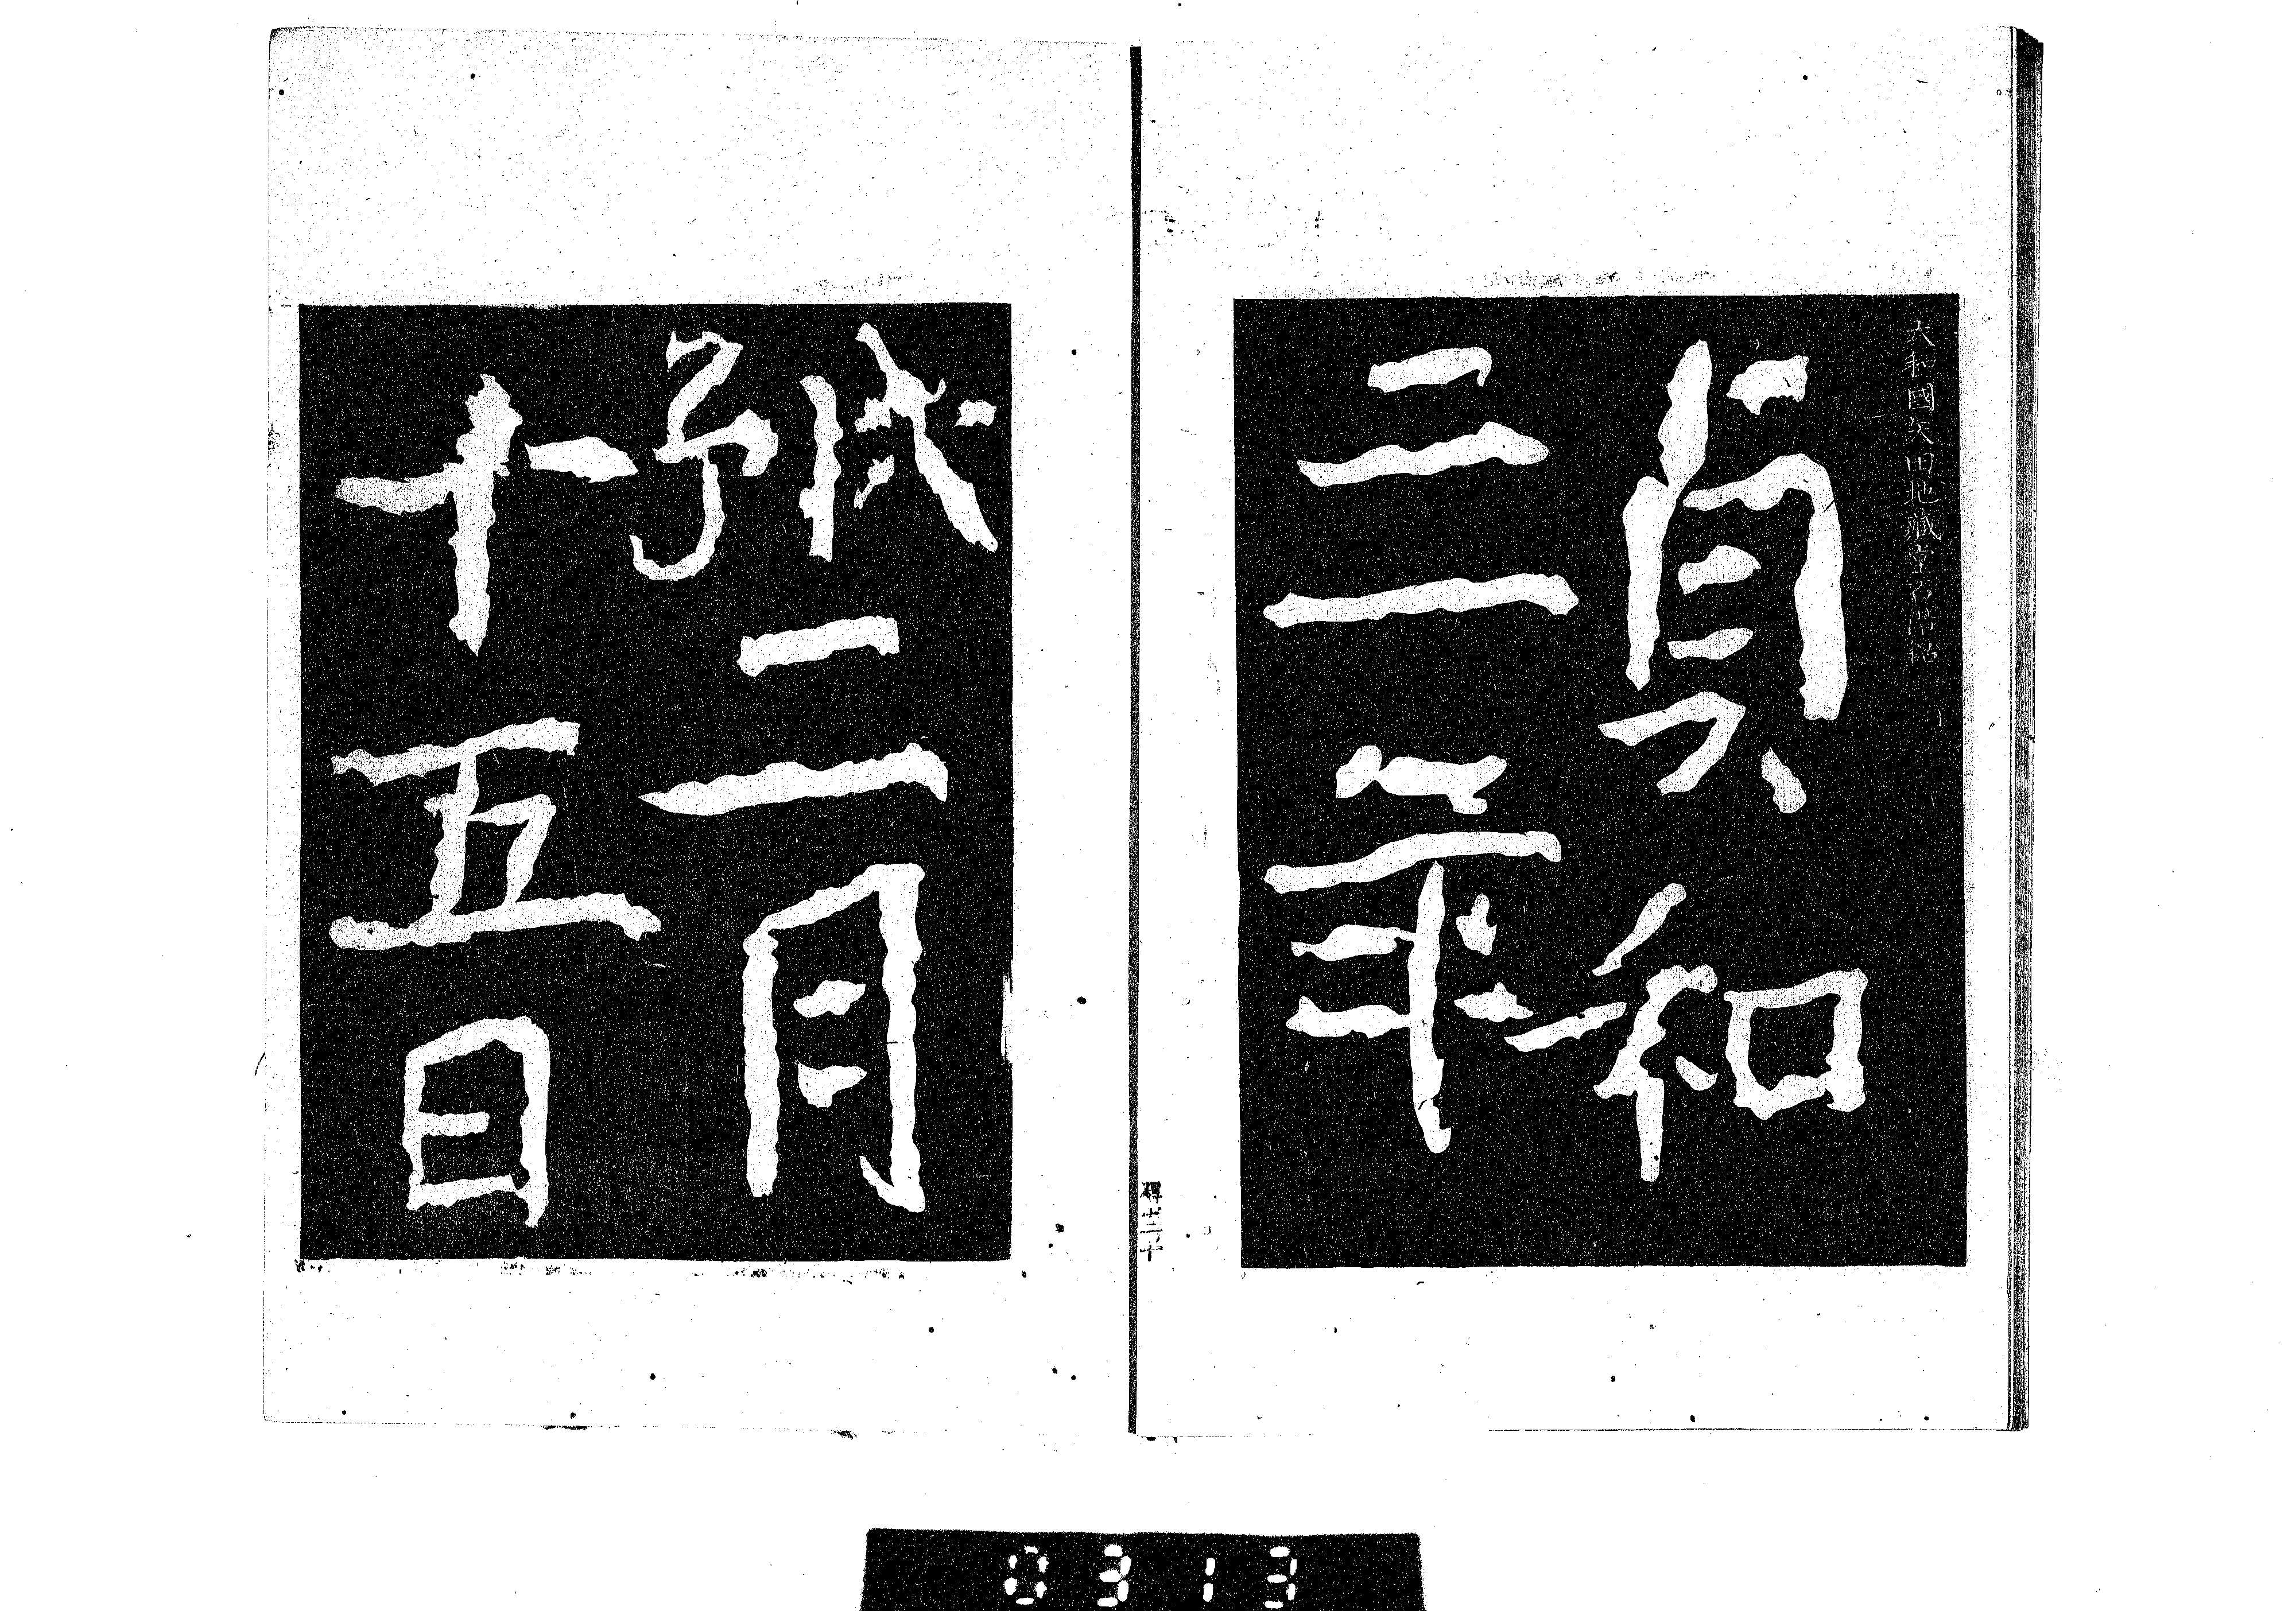 大和國矢田地藏堂石階銘
貞和
三年
子二月
十五日
0313